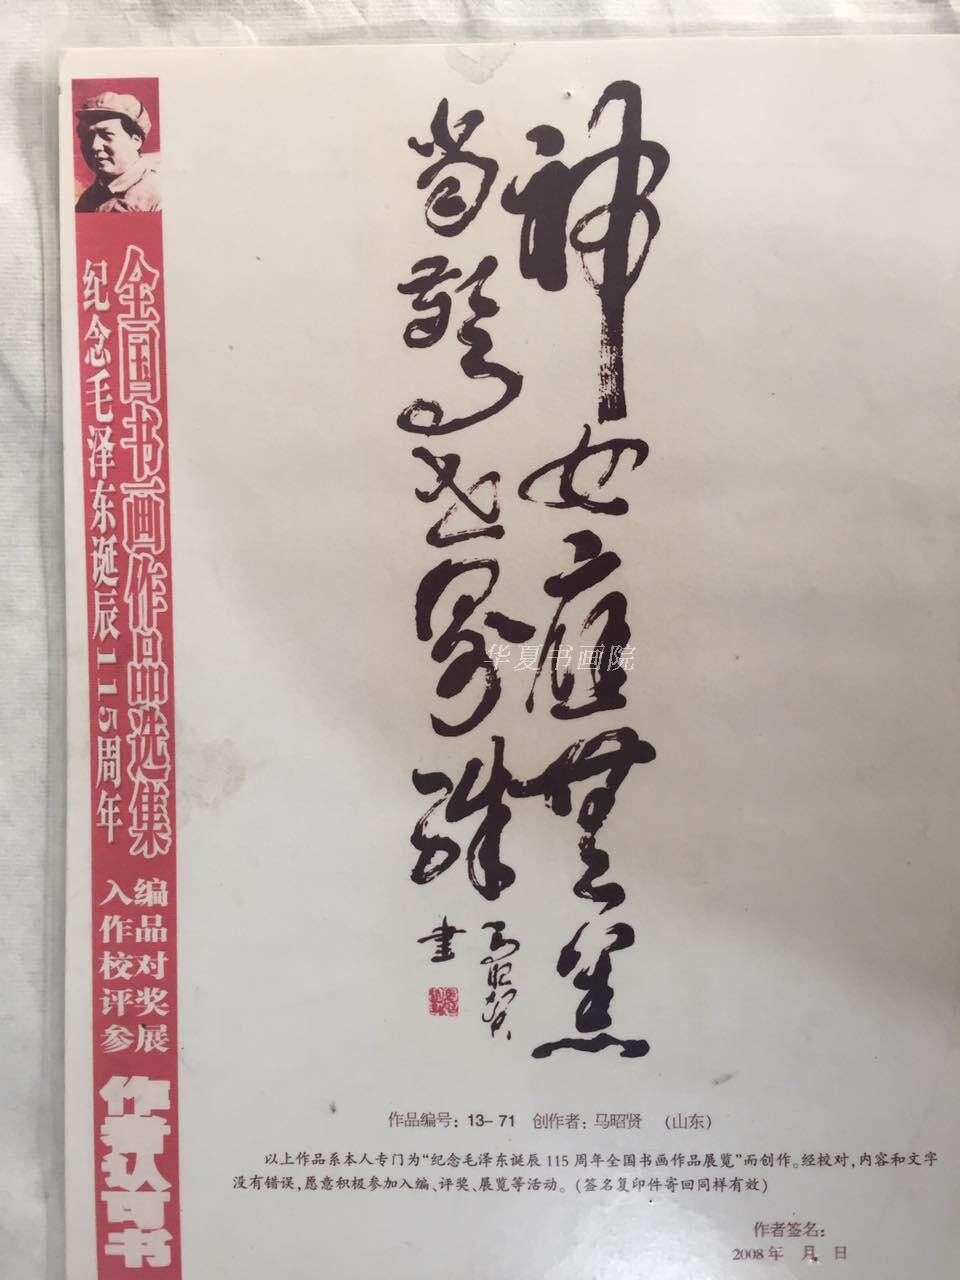 神女应无恙
当惊世界殊
马昭贤
书
华夏书画院
纪念毛泽东诞辰115周年
全国书画作品选集
入编
作品
校对
评奖
参展
作者认可书
作品编号：13-71 创作者：马昭贤 （山东）
以上作品系本人专门为“纪念毛泽东诞辰115周年全国书画作品展览”而创作。经校对，内容和文字
没有错误，愿意积极参加入编、评奖、展览等活动。（签名复印件寄回同样有效）
作者签名：
2008年 月 日